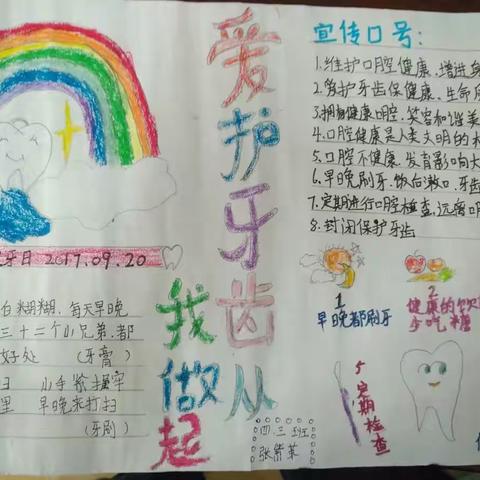 爱护牙齿从
我做起
宣传口号：
1.维护口腔健康、增进
2.爱护牙齿保健康、生命
3.拥有健康口腔、笑容和谐美
4.口腔健康是人类文明的
5.口腔不健康、发育影响大
6.早晚刷牙、饭后漱口、牙
7.定期进行口腔检查、远离
8.封闭保护牙齿
牙日 2017.09.20
白糊糊、每天早晚
三十二个小兄弟、都
好处 （牙膏）
小手紧握牢
里 早晚来打扫
（牙刷）
1
早晚都刷牙
2
健康的饮
少吃糖
5
定期检查
四.三班